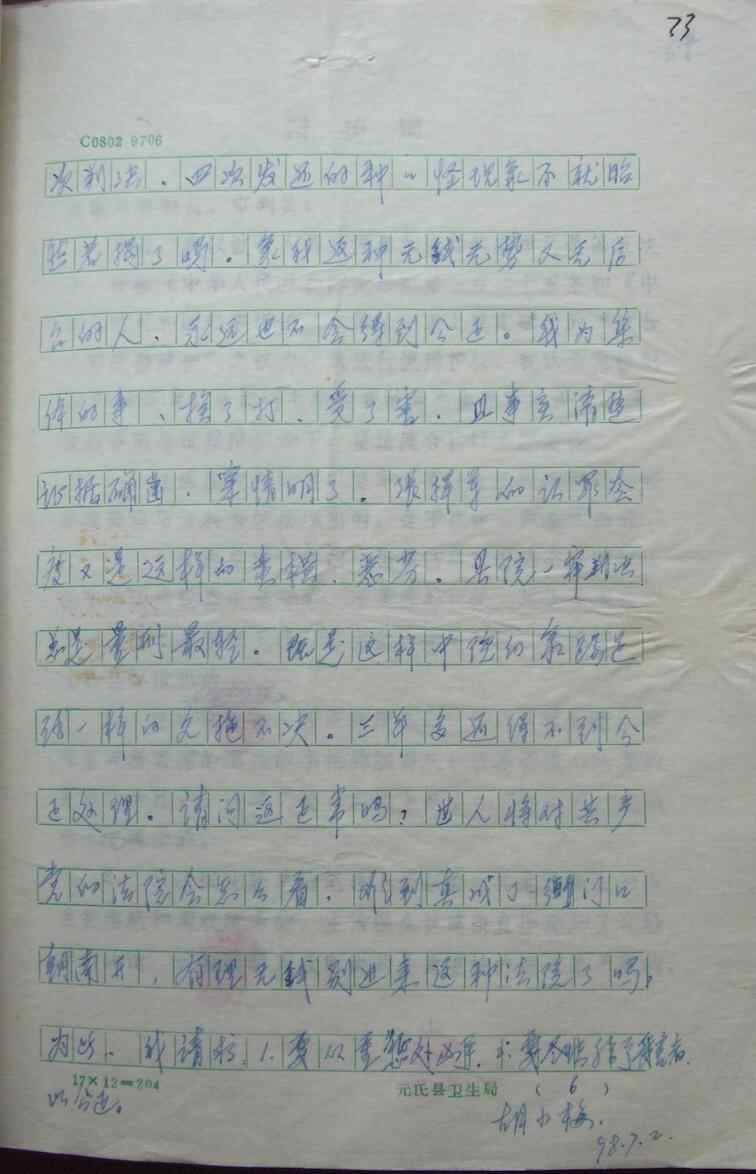 73
C0802 9706
次判决。四次发还的种〻怪现象不就昭
然若揭了吗。象我这种无钱无势又无后
台的人、永远也不会得到公正。我为集
体的事、挨了打、受了害、且事实清楚
证据确凿、案情明了。张辉军的认罪态
度又是这样的蛮横、恶劣。县院一审判决
总是量刑最轻。既是这样中院仍象踢足
球一样的久拖不决。三年多还得不到公
正处理。请问这正常吗？世人将对共产
党的法院会怎么看。难到真成了衙门口
朝南开，有理无钱别进来这种法院了吗？
为此、我请求、1.要从重惩处凶手、
17×12=204 元氏县卫生局 （6）
以公正。
胡小梅.
98.7.2.